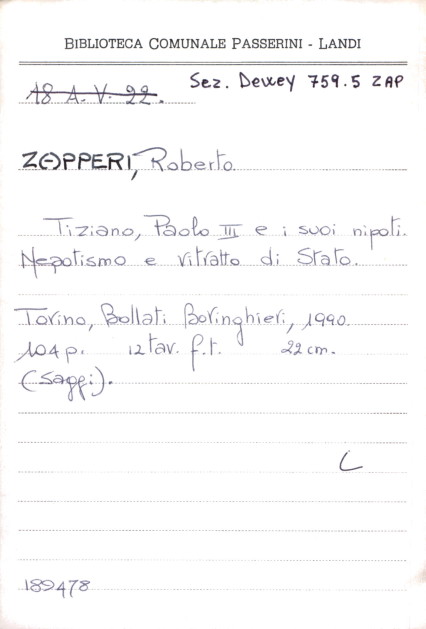 BIBLIOTECA COMUNALE PASSERINI - LANDI
Sez. Dewey 759.5 ZAP
A8 A.V. 22.
ZAPPERI, Roberto.
Tiziano, Paolo III e i suoi nipoti.
Nepotismo e ritratto di Stato.
Torino, Bollati Boringhieri, 1990.
104 p. 12 tav. f.t. 22 cm.
(Saggi).
C
189478